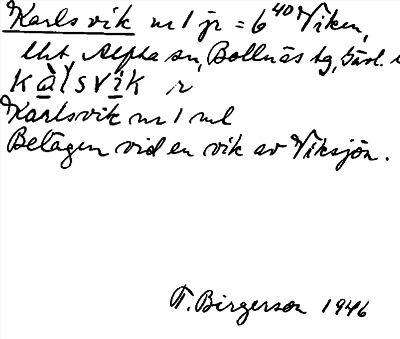 Karlsvik nr 1 jr = 6⁴⁰ Viken,
lht, Alpha sn, Bollnäs tg, Gävl.
kàlsvik r
Karlsvik nr 1 ml
Belägen vid en vik av Viksjön.
T. Birgerson 1946